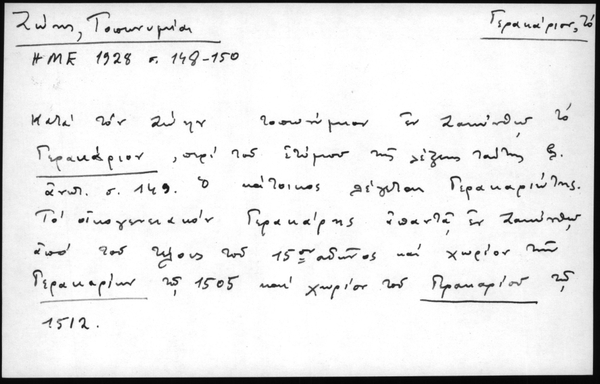 Ζώης, Τοπωνυμίαι
Γερακάριον, τό
ΗΜΕ 1928 σ. 148-150
Κατά τόν Ζώην τοπωνύμιον ἐν Ζακύνθῳ τό
Γερακάριον, περί τοῦ ἐτύμου τῆς λέξεως ταύτης
ἀνωτ. σ. 149. Ὁ κάτοικος λέγεται Γερακαριώτης.
Τό οἰκογενειακόν Γερακάρης ἀπαντᾷ ἐν Ζακύνθῳ
ἀπό τοῦ τέλους τοῦ 15ου αἰῶνος καί χωρίον τῶν
Γερακαρίων τῷ 1505 καί χωρίον τοῦ Γερακαρίου τῷ
1512.